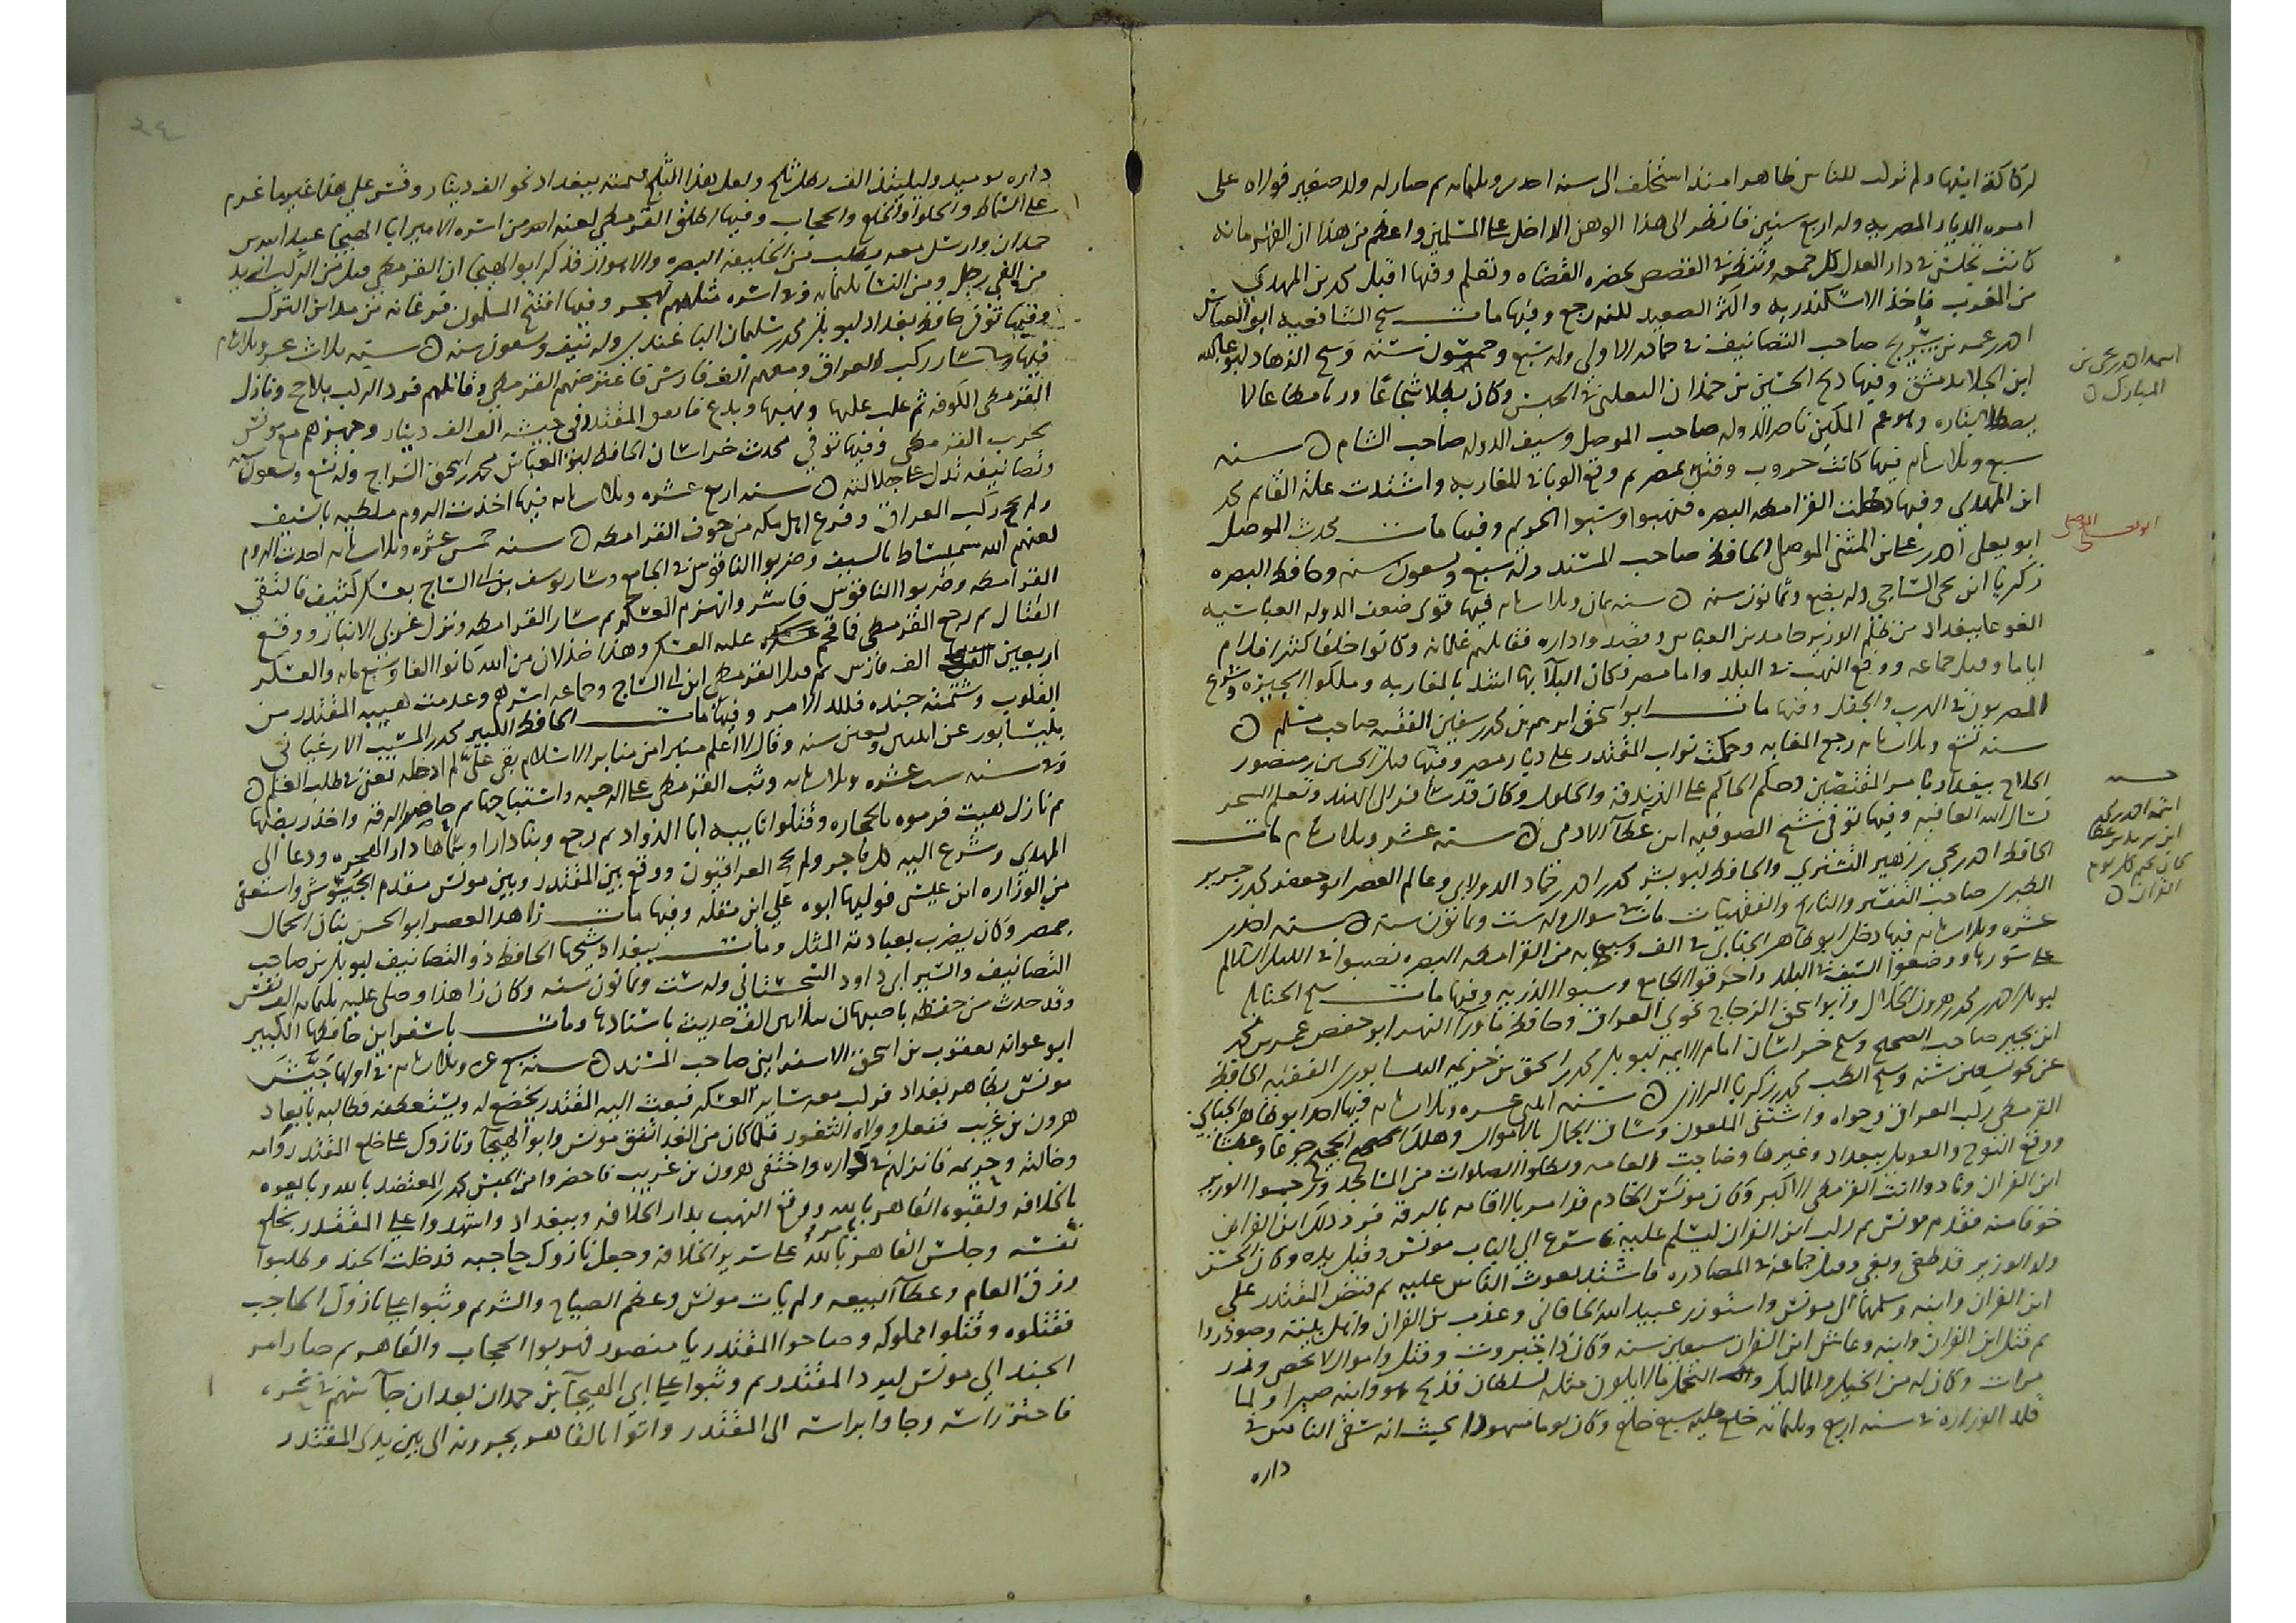 لركاكة ايتها ولم تولت للناس ظاهرا منذ استخلف الى سنه احدى وثلثمايه ثم صار له ولد صغير فولاه على
امره الديار المصريه وله اربع سنين فانظر الى هذا الوهن الداخل على المسلمين واعظم من هذا ان القهرمانه
كانت تجلس في دار العدل كل جمعه وتنظر في القصص بحضره القضاه وتعلم وفيها اقبل محمد بن المهدي
من المغرب فاخذ الاسكندريه واكثر الصعيد لكنه رجع وفيها مات شيخ الشافعيه ابو العباس
احمد بن عمر بن سريج صاحب التصانيف في جمادى الاولى وله سبع وخمسون سنه وشيخ الزهاد ابو عبد الله
ابن الجلا بدمشق وفيها ذبح الحسين بن حمدان التغلبي في الحبس وكان بطلا شجاعا
وهو عم الملكين ناصر الدوله صاحب الموصل وسيف الدوله صاحب الشام سنه
سبع وثلثمايه فيها كانت حروب وفتن بمصر ثم وقع الوبا في المغاربه واشتدت علة القايم محمد
ابن المهدي وفيها دخلت القرامطه البصره فنهبوا وسبوا الحريم وفيها مات محدث الموصل
ابو يعلى احمد بن علي بن المثنى الموصلي الحافظ صاحب المسند وله سبع وتسعون سنه وحافظ البصره
زكريا ابن يحيى الساجي وله بضع وثمانون سنه سنه ثمان وثلثمايه فيها قوى ضعف الدوله العباسيه
الغوغا ببغداد من ظلم الوزير حامد بن العباس وقصدوا داره فقاتلهم غلمانه وكانوا خلقا كثيرا فدام
اياما وقتل جماعه ووقع النهب في البلد واما مصر فكان البلا بها اشد بالمغاربه وملكوا الجيزه وشرع
المصريون في الهرب والجفل وفيها مات ابو اسحق ابرهيم بن محمد بن سفين الفقيه صاحب مسلم
سنه تسع وثلثمايه رجع المغاربه وحكمت نواب المقتدر على ديار مصر وفيها قتل الحسين بن منصور
الحلاج ببغداد بامر المقتدر وحكم الحاكم على الزندقه والحلول وكان قد سافر الى الهند وتعلم السحر
نسال الله العافيه وفيها توفي شيخ الصوفيه ابن عطا الادمي سنه عشر وثلثمايه مات
الحافظ احمد بن يحيى بن زهير التستري والحافظ ابو بشر محمد بن احمد بن حماد الدولابي وعالم العصر ابو جعفر محمد بن جرير
الطبري صاحب التفسير والتاريخ والفقهيات مات في شوال وله ست وثمانون سنه سنه احدى
عشره وثلثمايه فيها دخل ابو طاهر الجنابي في الف وسبعمايه من القرامطه البصره نصبوا في الليل السلالم
على سورها ووضعوا السيف في البلد واحرقوا الجامع وسبوا الذريه وفيها مات شيخ الحنابله
ابو بكر احمد بن محمد بن هرون الخلال وابو اسحق الزجاج نحوي العراق وحافظ ماورا النهر ابو حفص عمر بن محمد
ابن بجير صاحب الصحيح وشيخ خراسان امام الايمه ابو بكر محمد بن اسحق بن خزيمه النيسابوري الفقيه الحافظ
عن نحو تسعين سنه وشيخ الطب محمد بن زكريا الرازي سنه اثنتي عشره وثلثمايه فيها اخذ ابو طاهر الجنابي
القرمطي ركب العراق وحواه واشتفى الملعون وساق الجمال بالاموال وهلك الحجيج جوعا وعطشا
ووقع النوح والعويل ببغداد وغيرها وضاجت العامه وبطلوا الصلوات من المساجد ورجموا الوزير
ابن الفرات ونادوا انت القرمطي الاكبر وكان مونس الخادم قد امر بالاقامه بالرقه
خوفا منه فقدم مونس ثم ركب ابن الفرات ليسلم عليه فاسرع الى الباب مونس وقبل يده وكان المحسن
ولد الوزير قد طغى وبغى وقتل جماعه في المصادره فاشتد غوث الناس عليه ثم قبض المقتدر على
ابن الفرات وابنه وسلمهما الى مونس واستوزر عبيد الله الخاقاني وعذب بن الفرات واهل بيته وصودروا
ثم قتل ابن الفرات وابنه وعاش ابن الفرات سبعين سنه وكان ذا جبروت وفتك واموال لا تحصى وزر
مرات وكان له من الخيل والمماليك والتجمل ما لا يكون مثله لسلطان فذبح هو وابنه صبرا ولما
قلد الوزاره في سنه اربع وثلثمايه خلع عليه سبع خلع وكان يوما مشهودا بحيث انه سقي الناس في
داره
احمد بن يحيى بن
الجلا
ابو يعلى الموصلي
اسمه احمد بن محمد
ابن سهل بن عطا
كان يختم كل يوم
القران
٢٤
داره يوميذ وليلتيذ الف رطل ثلج ولعل هذا الثلج قيمته ببغداد نحو الف دينار وقس على هذا غير ما غرم
على السماط والحلوا والخلع والحجاب وفيها اطلق القرمطي لعنه الله من اسره الامير ابا الهيجا عبد الله بن
حمدان وارسل معه يطلب من الخليفه البصره والاهواز فذكر ابو الهيجا ان القرمطي قتل من الركب ازيد
من الفي رجل ومن النسا ثلثمايه وفي اسره مثلهم بهجر وفيها افتتح المسلمون فرغانه من مداين الترك
وفيها توفي حافظ بغداد ابو بكر محمد بن سليمان الباغندي وله نيف وتسعون سنه سنه ثلاث عشره وثلثمايه
فيها سار ركب العراق ومعهم الف فارس فاعترضهم القرمطي وقاتلهم فرد الركب بلا حج ونازل
القرمطي الكوفه ثم غلب عليها ونهبها فانفق المقتدر في جيشه الف الف دينار وجهزهم مع مونس
لحرب القرمطي وفيها توفي محدث خراسان الحافظ ابو العباس محمد بن اسحق السراج وله تسع وتسعون سنه
وتصانيفه تدل على جلالته سنه اربع عشره وثلثمايه فيها اخذت الروم ملطيه بالسيف
ولم يحج ركب العراق وفزع اهل مكه من خوف القرامطه سنه خمس عشره وثلثمايه اخذت الروم
لعنهم الله سميساط بالسيف وضربوا الناقوس في الجامع وسار يوسف بن ابي الساج بعسكر كثيف فالتقى
القرامطه وضربوا الناقوس فاسر وانهزم العسكر ثم سار القرامطه ونزل غربي الانبار ووقع
القتال ثم رجع القرمطي فما قحم عليه العسكر وهذا خذلان من الله كانوا الفا وسبع مايه والعسكر
اربعين الف فارس ثم قتل القرمطي ابن ابي الساج وجماعه اسرهم وعدمت هيبه المقتدر من
القلوب وشتمته جنده فلله الامر وفيها مات الحافظ الكبير محمد بن المسيب الارغياني
بنيسابور عن اثنتين وتسعين سنه وقال لا اعلم منبرا من منابر الاسلام بقي علي لم ادخله تعني في طلب العلم
وفي سنه ست عشره وثلثمايه وثب القرمطي على الرحبه واستباحها ثم حاصر الرقه واخذ ربضها
ثم نازل هيت فرموه بالحجاره وقتلوا نايبه ابا الذواد ثم رجع وبنا دارا وسماها دار الهجره ودعا الى
المهدي وسرع اليه كل فاجر ولم يحج العراقيون ووقع بين المقتدر وبين مونس مقدم الجيوش واستعفى
من الوزاره ابن عيسى فوليها ابوه علي ابن مقله وفيها مات زاهد العصر ابو الحسن بنان الحمال
بمصر وكان يضرب بعبادته المثل ومات ببغداد شيخها الحافظ ذو التصانيف ابو بكر بن صاحب
التصانيف والسير ابي داود السجستاني وله ست وثمانون سنه وكان زاهدا وصلى عليه ثلثمايه الف نفس
وقد حدث من حفظه باصبهان بثلاثين الف حديث باسنادها ومات باسفراين حافظها الكبير
ابو عوانه يعقوب بن اسحق الاسفرايني صاحب المسند سنه سبع عشره وثلثمايه في اولها جيش
مونس بظاهر بغداد فركب معه ساير العسكر فبعث اليه المقتدر يخضع له ويستعطفه فطالبه بابعاد
هرون بن غريب ففعل وولاه الثغور فلما كان من الغد اتفق مونس وابو الهيجا ونازوك على خلع المقتدر وامه
وخالته وحريمه فانزلهم في داره واختفى هرون بن غريب فاحضروا من الحبس محمد بن المعتضد بالله وبايعوه
بالخلافه ولقبوه القاهر بالله ووقع النهب بدار الخلافه وببغداد واشهدوا على المقتدر بخلع
نفسه وجلس القاهر بالله على سرير الخلافه وجعل نازوك حاجبه فدخلت الجند وطلبوا
رزق العام وعطا البيعه ولم يات مونس وعظم الصياح والشر ثم وثبوا على نازوك الحاجب
فقتلوه وقتلوا مملوكه وصاحوا المقتدر يا منصور فهربوا الحجاب والقاهر ثم صار امر
الجند الى مونس ليرد المقتدر ثم وثبوا على ابي الهيجا بن حمدان بعد ان جا سهم في نحره
فاحتز راسه وجاوا براسه الى المقتدر واتوا بالقاهر يجرونه الى بين يدي المقتدر